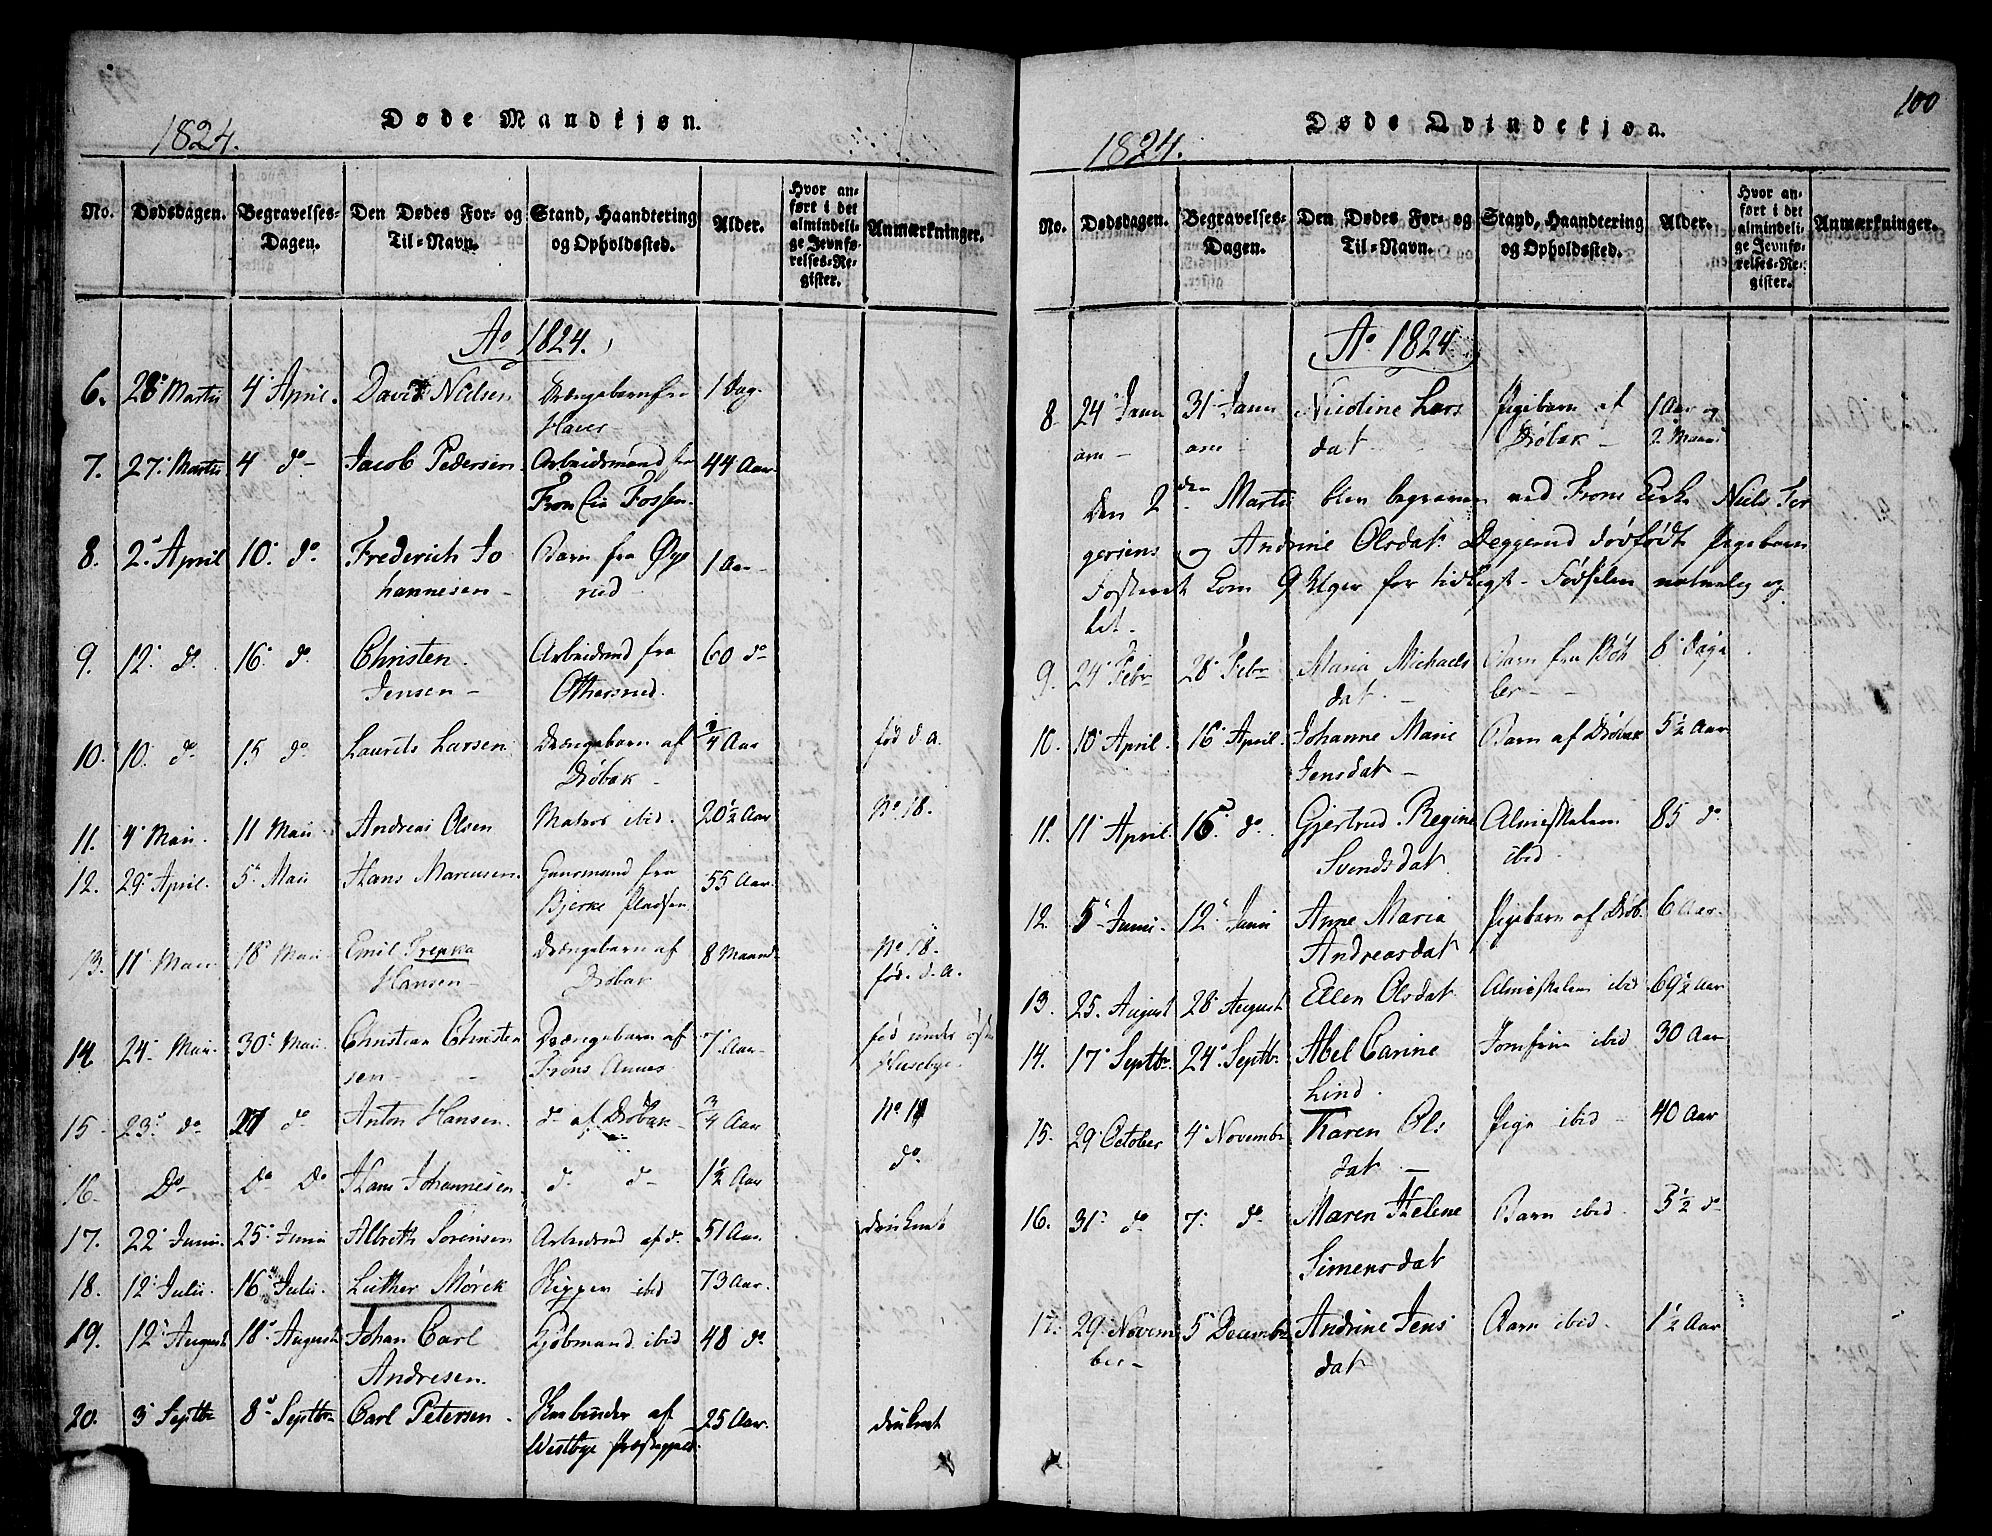 Døde Mandkjøn.
1824.
No. Dødsdagen. Begravelses-Dagen. Den Dødes For- og Til-Navn. Stand, Haandtering og Opholdssted. Alder. Hvor anført i det almindelige Jevnførelses-Register. Anmærkninger.
Ao 1824.
6. 28 Martii 4 April. David Nielsen Drængebarn fra Haver 1 Dag.
7. 27 Martii 4 do Jacob Pedersen Arbeidsmand fra Fron Eie Fossen 44 Aar
8. 2 April 10 do Frederich Johannesen Barn fra 1 Aar
9. 12 do 16 do Christen Jensen Arbeidsmd fra Ottersrud. 60 do
10. 10 do 15 do Laurits Larsen Drængebarn af Drøbak 3/4 Aar fød d. a.
11. 4 Maii 11 Maii Andreas Olsen Matros ibid. 20 1/2 Aar No 18.
12. 29 April. 5 Maii Hans Marcusen Gaarmand fra Bjerke Pladsen 55 Aar
13. 11 Maii 18 Maii Emil Trepka Hansen Drængebarn af Drøbak 8 Maand No 18. fød. d. a.
14 24 Maii 30 Maii Christian Christensen Drængebarn af Frons Annex 7 Aar fød under
Huseby.
15 23 do 27 do Anton Hansen do af Drøbak 3/4 Aar No 18
16 Do Do Do Hans Johannesen d d 1 1/2 Aar do
17. 22 Junii 25 Junii Albreth Sørensen Arbeidsmd af d 51 Aar druknet
18. 12 Julii. 16 Julii. Luther Mørck Skipper ibid 73 Aar.
19. 12 August 18 August Johan Carl Andresen Kjøbmand ibid 48 do
20. 3 Septbr 8 Septbr Carl Petersen af Westbye Præstegjæld 25 Aar druknet
Døde Qvindekjøn.
100
1824.
No. Dødsdagen. Begravelses-Dagen. Den Dødes For- og Til-Navn. Stand, Haandteering og Opholdssted. Alder. Hvor anført i det almindelige Jevnførelses-Register. Anmærkninger.
Ao 1824
8 24 Januarii 31 Januarii Nicoline Larsdat Pigebarn af Drøbak 1 Aar og 2 Maan
Den 2den Martii blev begraven ved Frons Kirke Niels Tor
gersens og Andrine Olsdat Deggerud dødfødt Pigebarn
Fosteret kom 9 Uger for tidligt Fødselen naturlig og
let.
9. 24 Febr 28 Febr Maria Michaelsdat Barn fra 8 Dage
10. 10 April. 16 April. Johanne Marie Jensdat Barn af Drøbak 5 1/2 Aar
11. 11 April 16 do Gjertrud Regine Svendsdat Almisselem ibid 85 do
12. 5 Junii 12 Junii Anne Maria Andreasdat Pigebarn af Drøb. 6 Aar.
13. 25. August 28 August Ellen Olsdat Almisselem ibid 69 1/2 Aar
14. 17 Septbr 24 Septbr. Abel Carine Lind. Jomfrue ibid 30 Aar
15. 29 October 4 Novembr Karen Olsdat Pige ibid 40 Aar
16. 31 do 7 do Maren Helene Simensdat Barn ibid 3 1/2 do
17. 29 November 5 Decembr Andrine Jensdat Barn ibid. 1 1/2 Aar